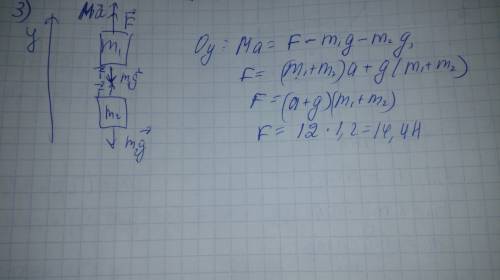 3)
y
Ma F
m₁
F m₁g
F
m₂
m₂g
Oy: Ma = F - m₁g - m₂g,
F = (m₁+m₂)a + g(m₁+m₂)
F = (a+g)(m₁+m₂)
F = 12 · 1,2 = 14,4Н